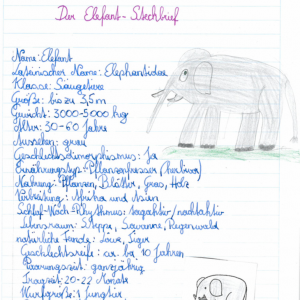 Der Elefant-Steckbrief
Name: Elefant
Lateinischer Name: Elephantidae
Klasse: Säugetiere
Größe: bis zu 3,5m
Gewicht: 3000-5000 kg
Alter: 30-60 Jahre
Aussehen: grau
Geschlechtsdimorphismus: Ja
Ernährungstyp: Pflanzenfresser (herbivor)
Nahrung: Pflanzen, Blätter, Gras, Holz
Verbreitung: Afrika und Asien
Schlaf-Wach-Rhythmus: tagaktiv/nachtaktiv
Lebensraum: Steppe, Savanne, Regenwald
natürliche Feinde: Löwe, Tiger
Geschlechtsreife: ca. bei 10 Jahren
Paarungszeit: ganzjährig
Tragzeit: 20-22 Monate
Wurfgröße: 1 Jungtier